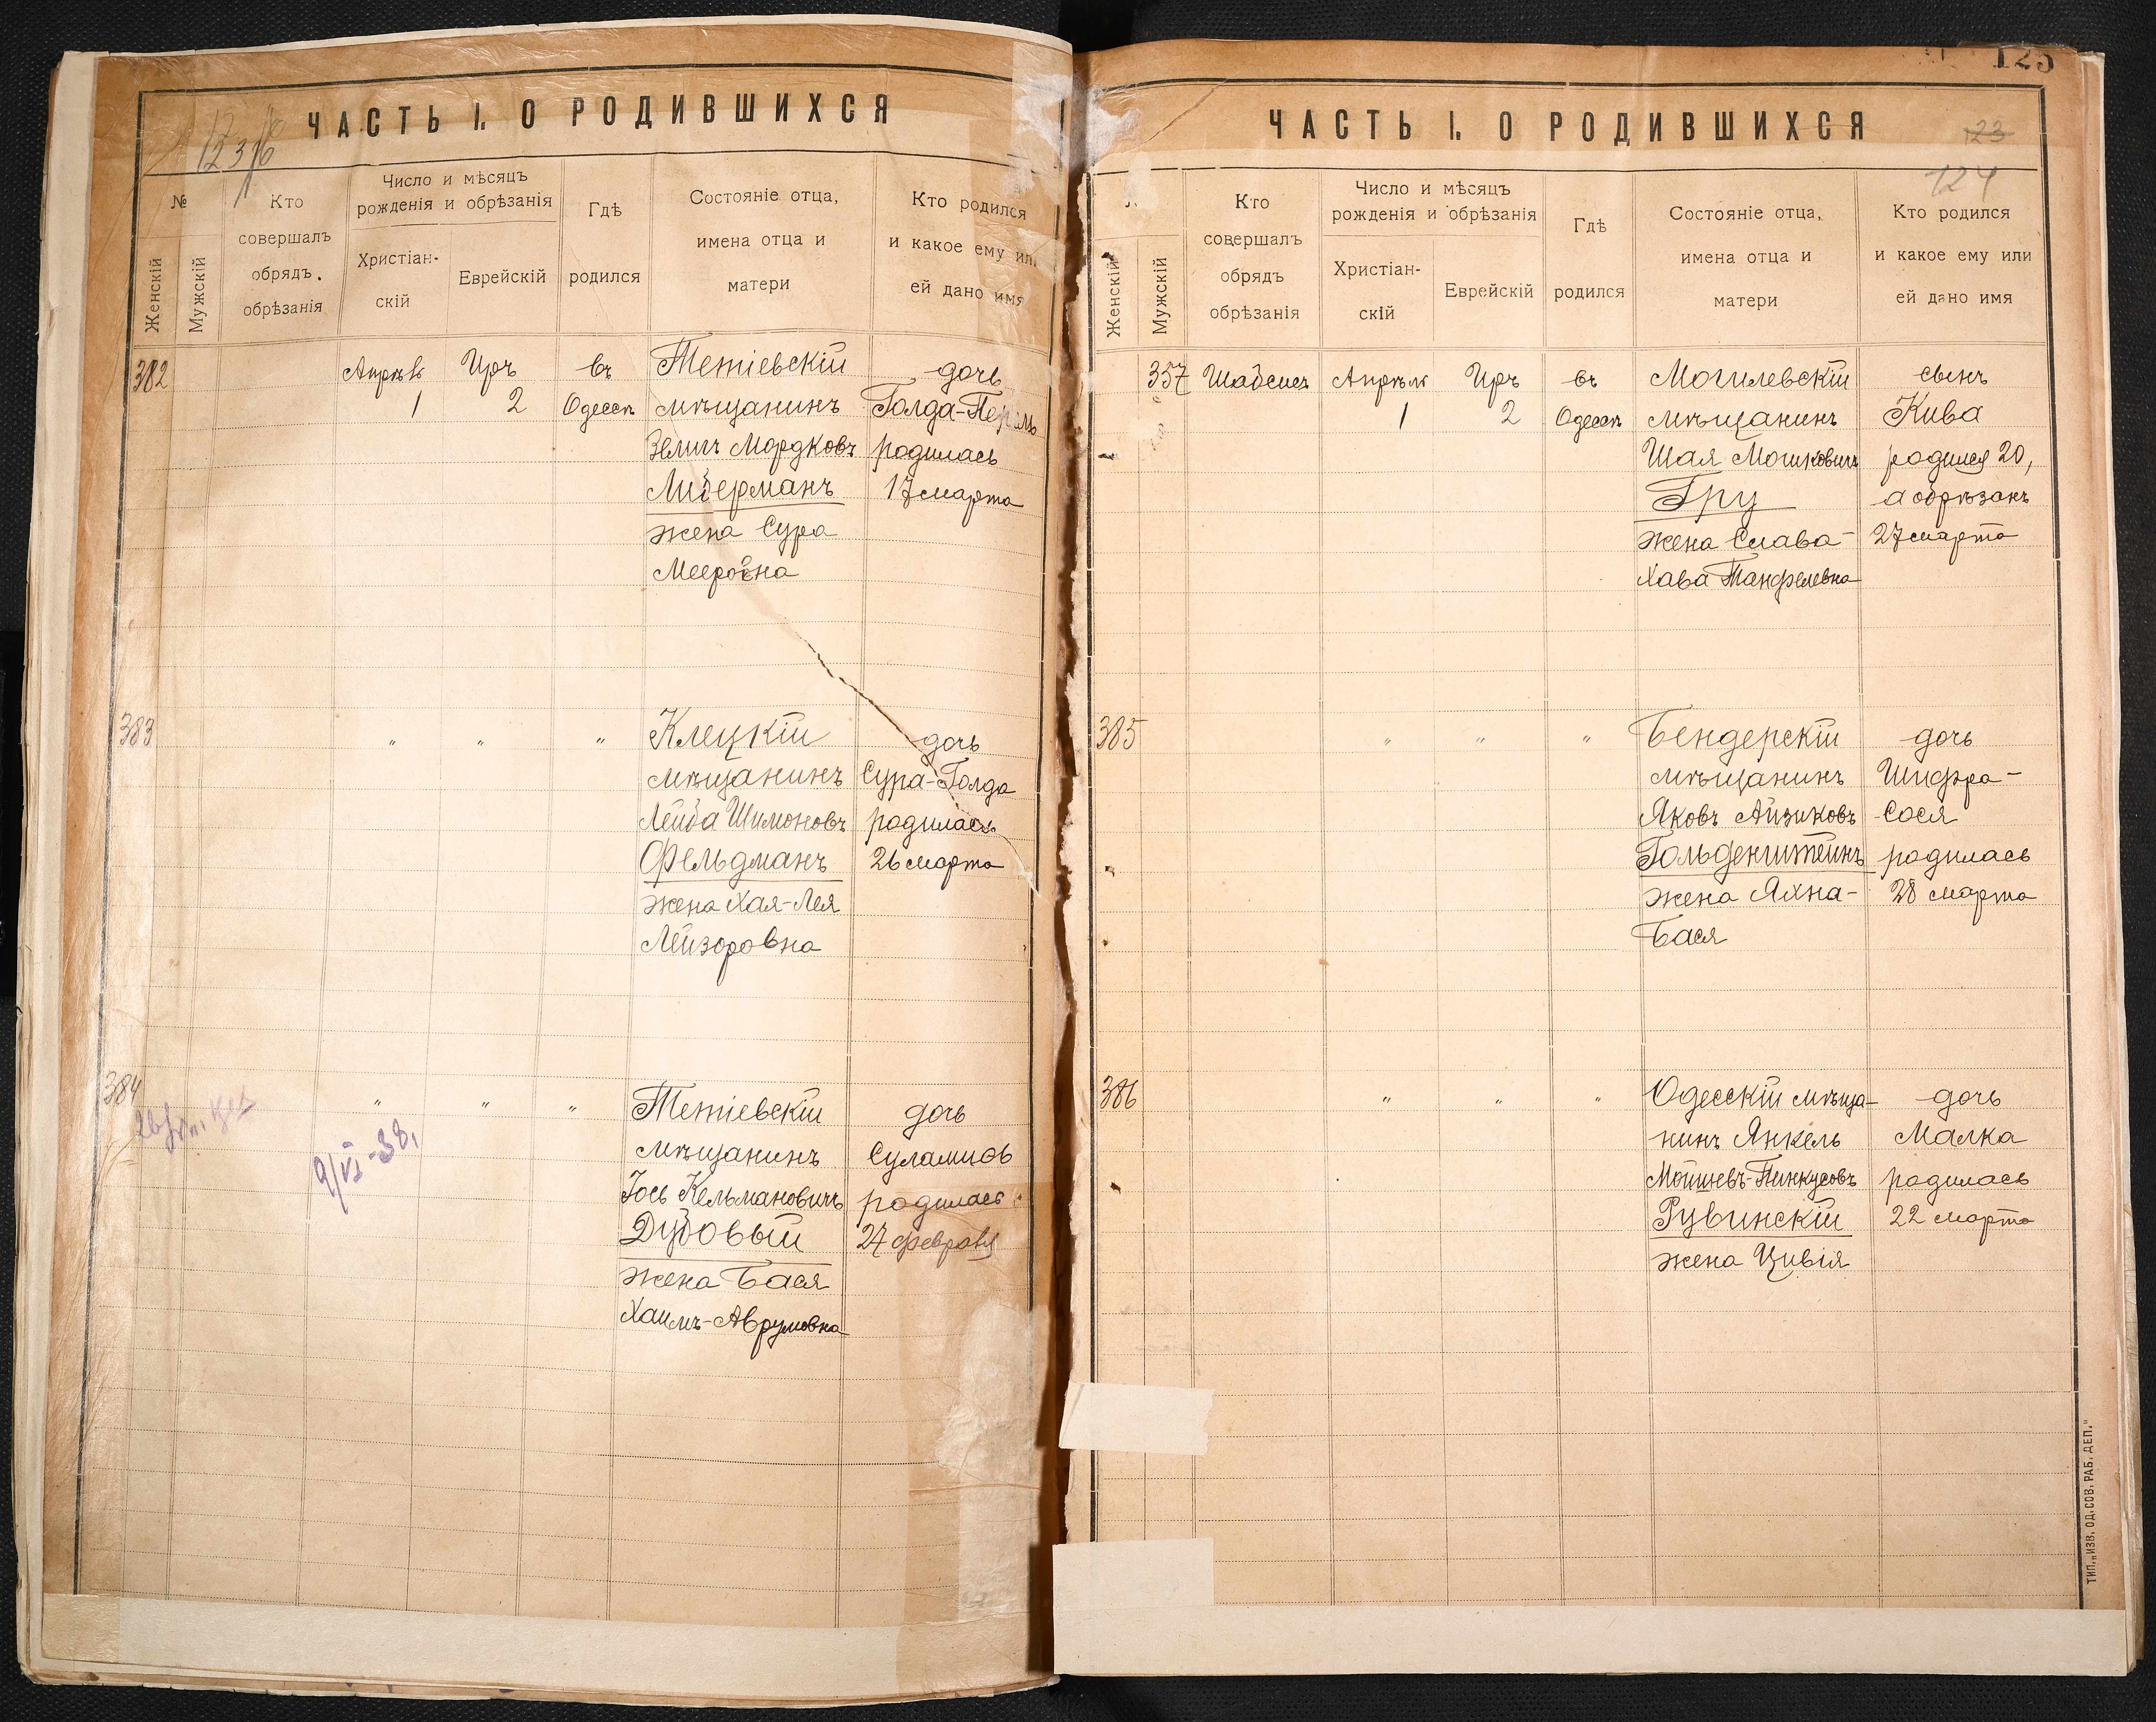 ЧАСТЬ I. О РОДИВШИХСЯ
№
Женскій
Мужскій
Кто
совершалъ
обрядъ
обрѣзанія
Число и мѣсяцъ
рожденія и обрѣзанія
Христіан-
скій
Еврейскій
Гдѣ
родился
Состояніе отца,
имена отца и
матери
Кто родился
и какое ему или
ей дано имя
382
Апрѣль
1
Иръ
2
въ
Одессѣ
Тетіевскій
мѣщанинъ
Зелигъ Мордковъ
Либерманъ
жена Сура
Мееровна
дочь
Голда-Перль
родилась
17 марта
383
" " "
Клецкій
мѣщанинъ
Лейба Шимоновъ
Фельдманъ
жена Хая-Лея
Лейзоровна
дочь
Сура-Голда
родилась
26 марта
384
9/VI-38.
" " "
Тетіевскій
мѣщанинъ
Іось Кельмановичъ
Дубовый
жена Бася
Хаимъ-Аврумовна
дочь
Суламиѳь
родилась
27 февраля
125
ЧАСТЬ I. О РОДИВШИХСЯ
123
124
Женскій
Мужскій
Кто
совершалъ
обрядъ
обрѣзанія
Число и мѣсяцъ
рожденія и обрѣзанія
Христіан-
скій
Еврейскій
Гдѣ
родился
Состояніе отца,
имена отца и
матери
Кто родился
и какое ему или
ей дано имя
357
Апрѣль
1
Иръ
2
въ
Одессѣ
Могилевскій
мѣщанинъ
Шая Мошковичъ
Гру
жена Слава-
Хава Танфелевна
сынъ
Кива
родился 20,
а обрѣзанъ
27 марта
385
" " "
Бендерскій
мѣщанинъ
Яковъ Айзиковъ
Гольденштейнъ
жена Яхна-
Бася
дочь
Шифра-
Сося
родилась
28 марта
386
" " "
Одесскій мѣща-
нинъ Янкель
Мойшевъ-Пинкусовъ
Рувинскій
жена Цивія
дочь
Малка
родилась
22 марта
ТИП. „ИЗВ. ОД. СОВ. РАБ. ДЕП."